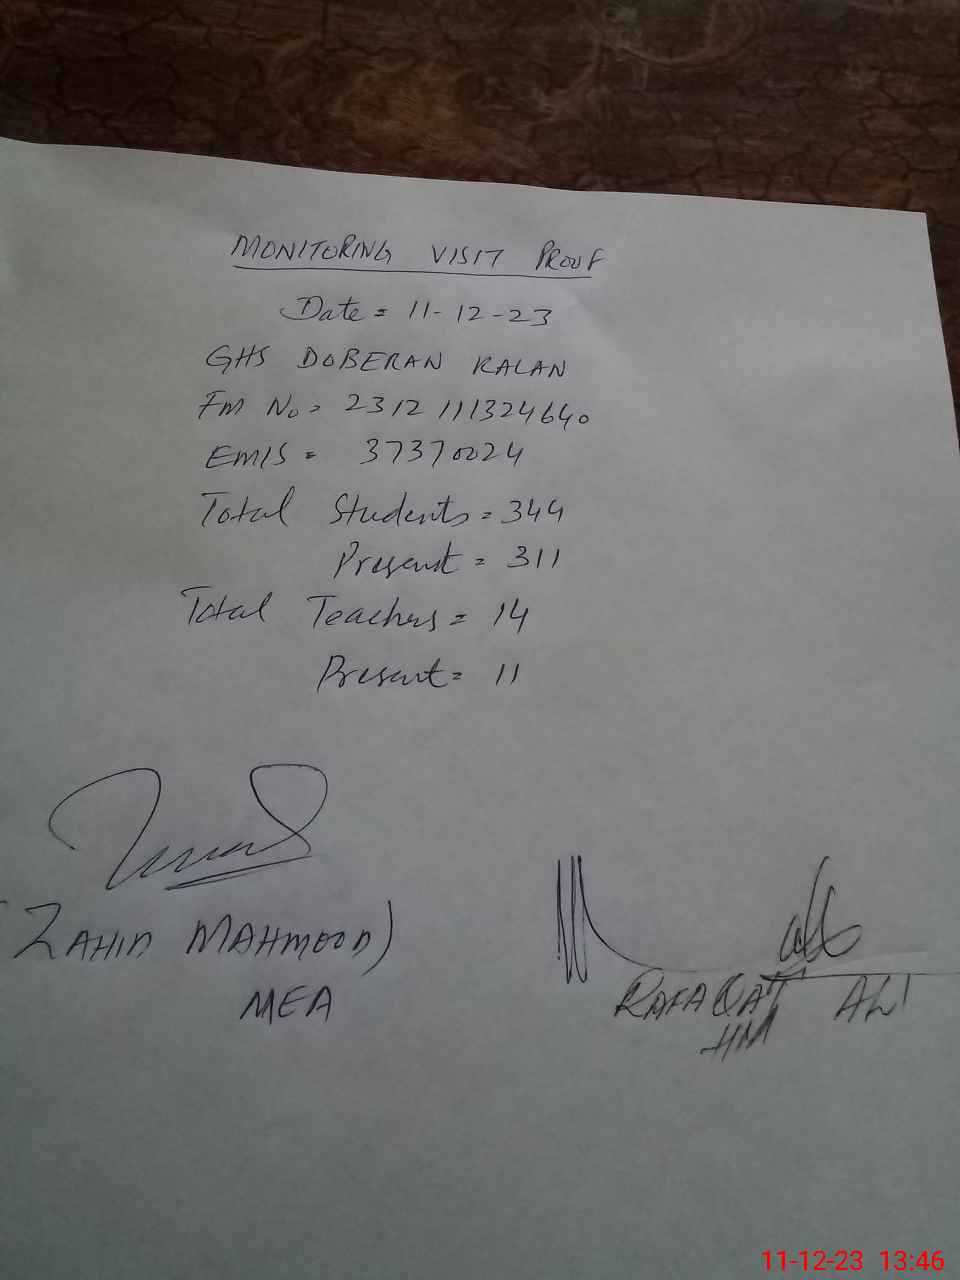 MONITORING VISIT PROOF
Date = 11-12-23
GHS DOBERAN KALAN
Fm No = 2312111324640
EMIS = 37370024
Total Students = 344
Present = 311
Total Teachers = 14
Present = 11
(ZAHID MAHMOOD)
MEA
RAFAQAT ALI
HM
11-12-23 13:46